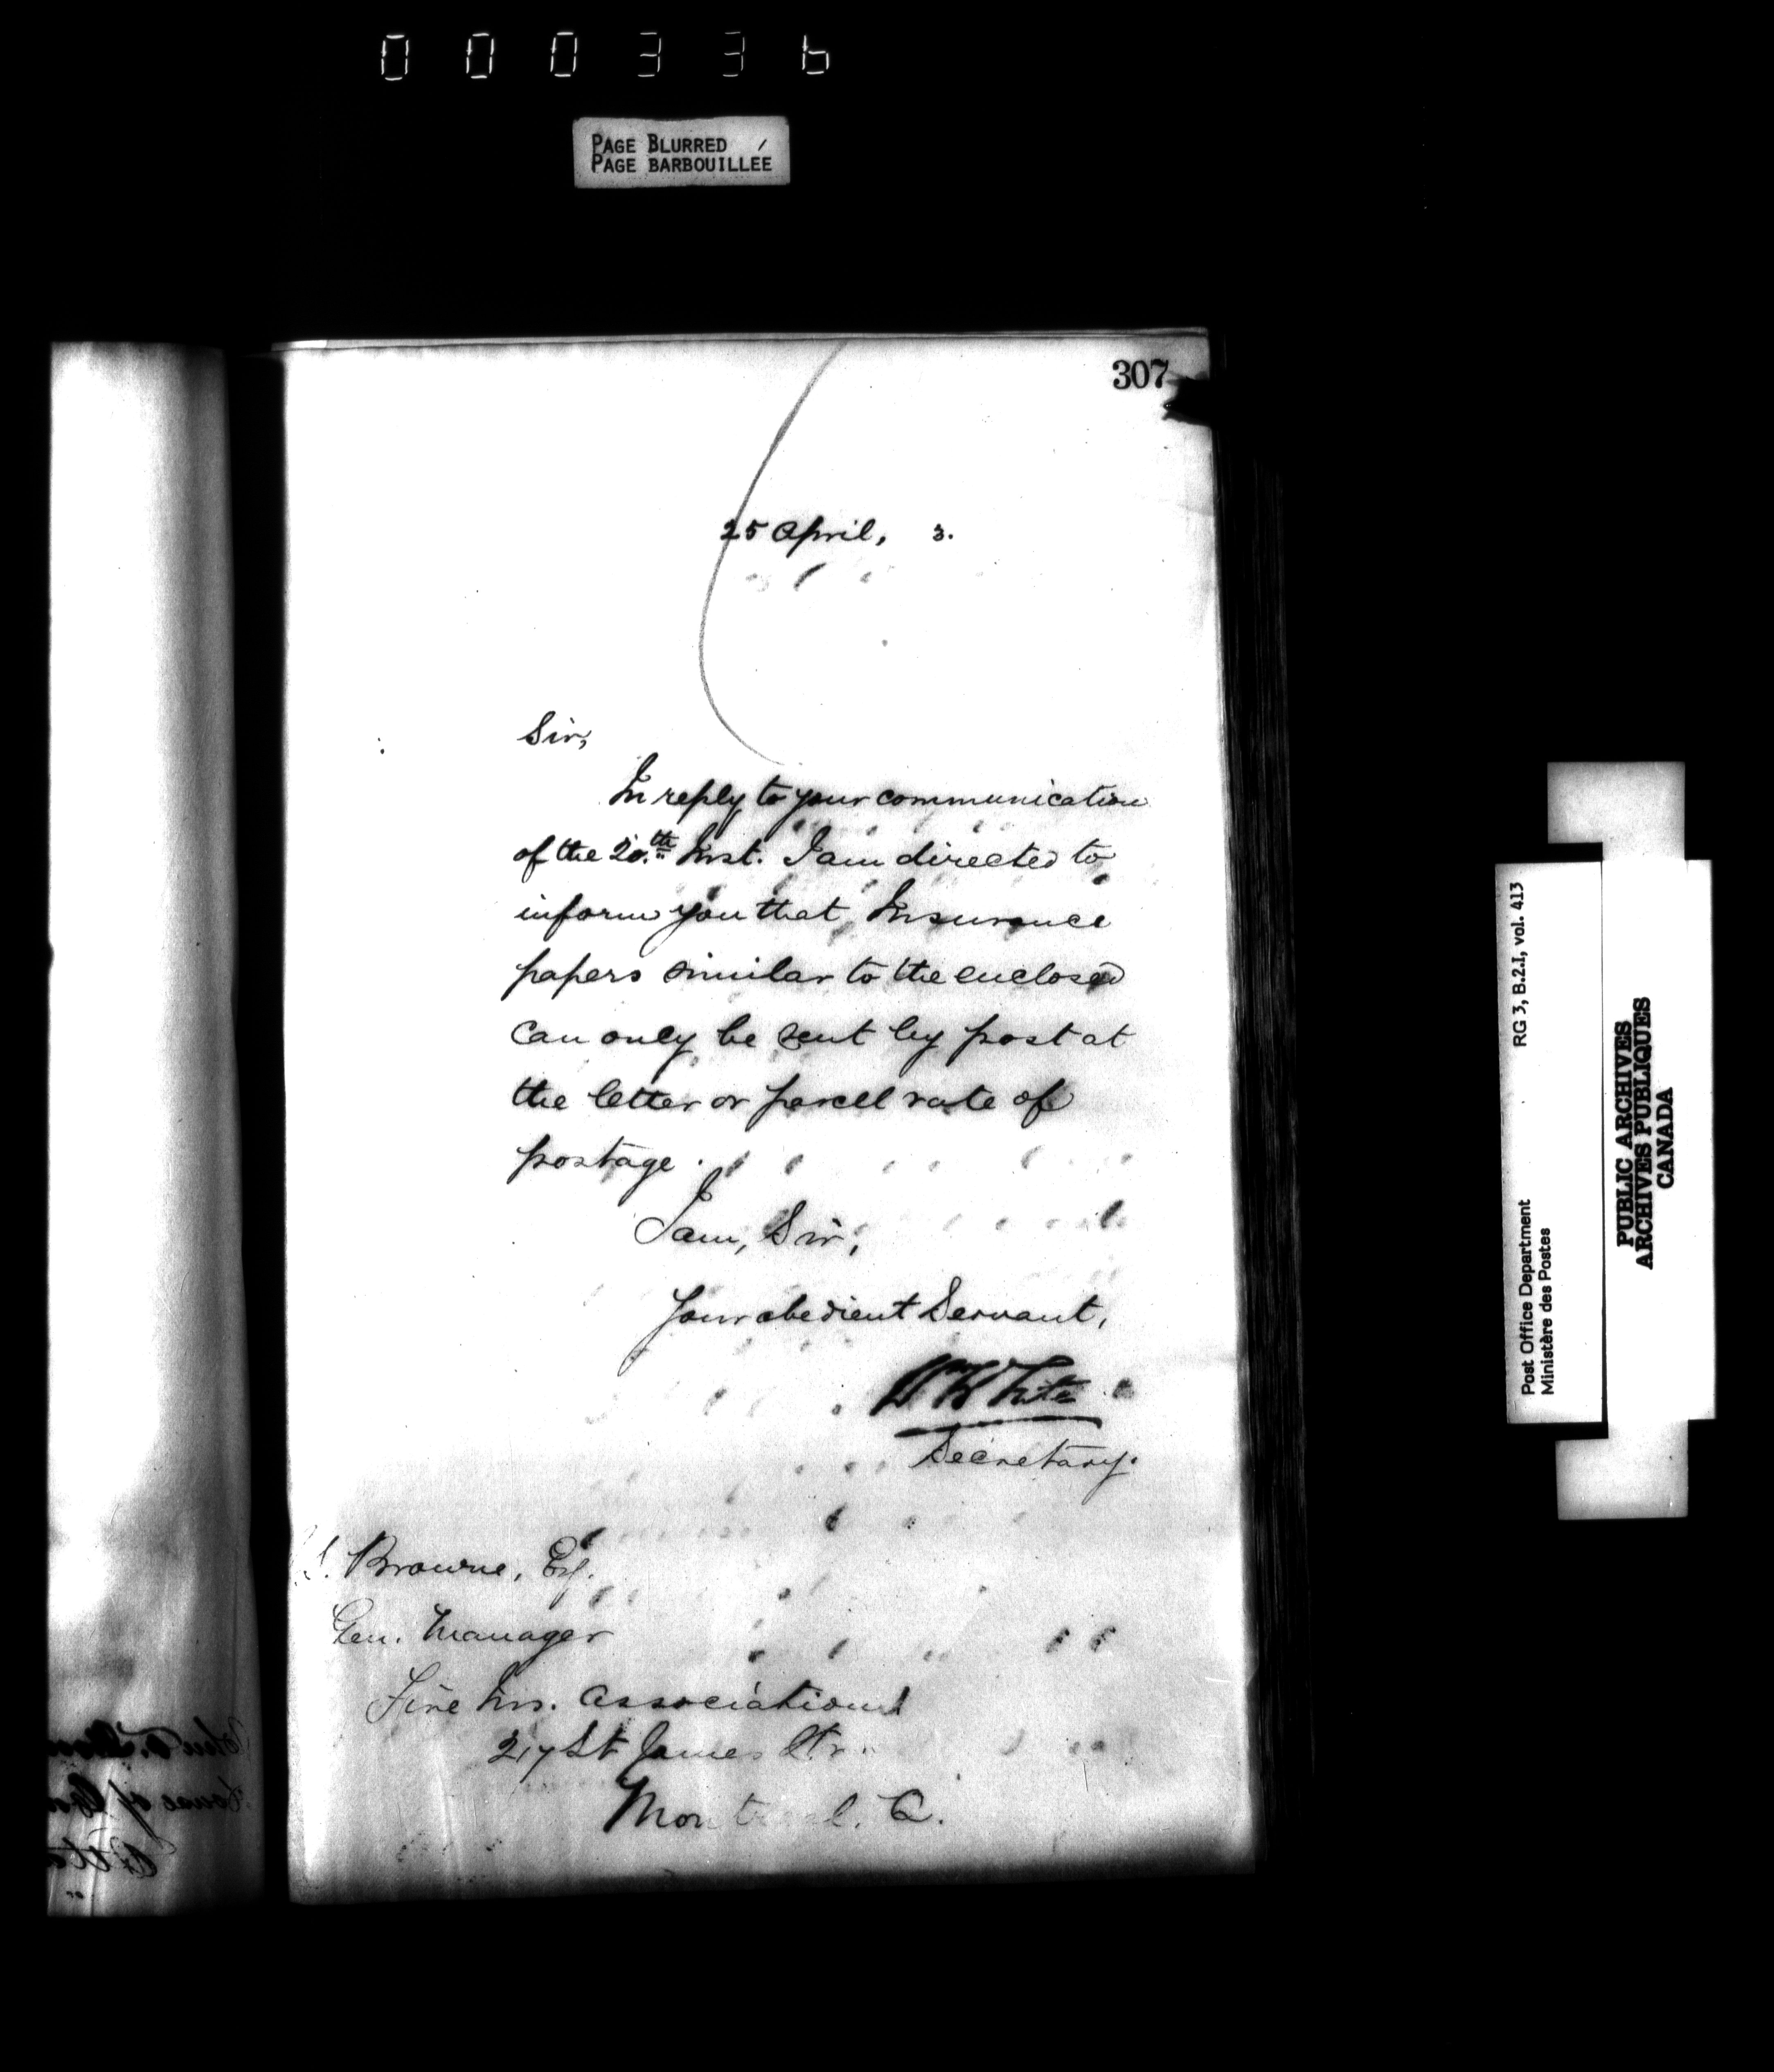 000336
PAGE BLURRED
PAGE BARBOUILLÉE
307
25 April, 3.
Sir,
In reply to your communication
of the 20.th Inst. I am directed to
inform you that Insurance
papers similar to the enclosed
can only be sent by post at
the letter or parcel rate of
postage.
I am, Sir,
Your obedient Servant,
W White
Secretary.
Browne, Esq.
Gen. Manager
Fire Ins. Association
217 St James Str
Montreal. Q.
RG 3, B.2.I, vol. 413
Post Office Department
Ministère des Postes
PUBLIC ARCHIVES
ARCHIVES PUBLIQUES
CANADA